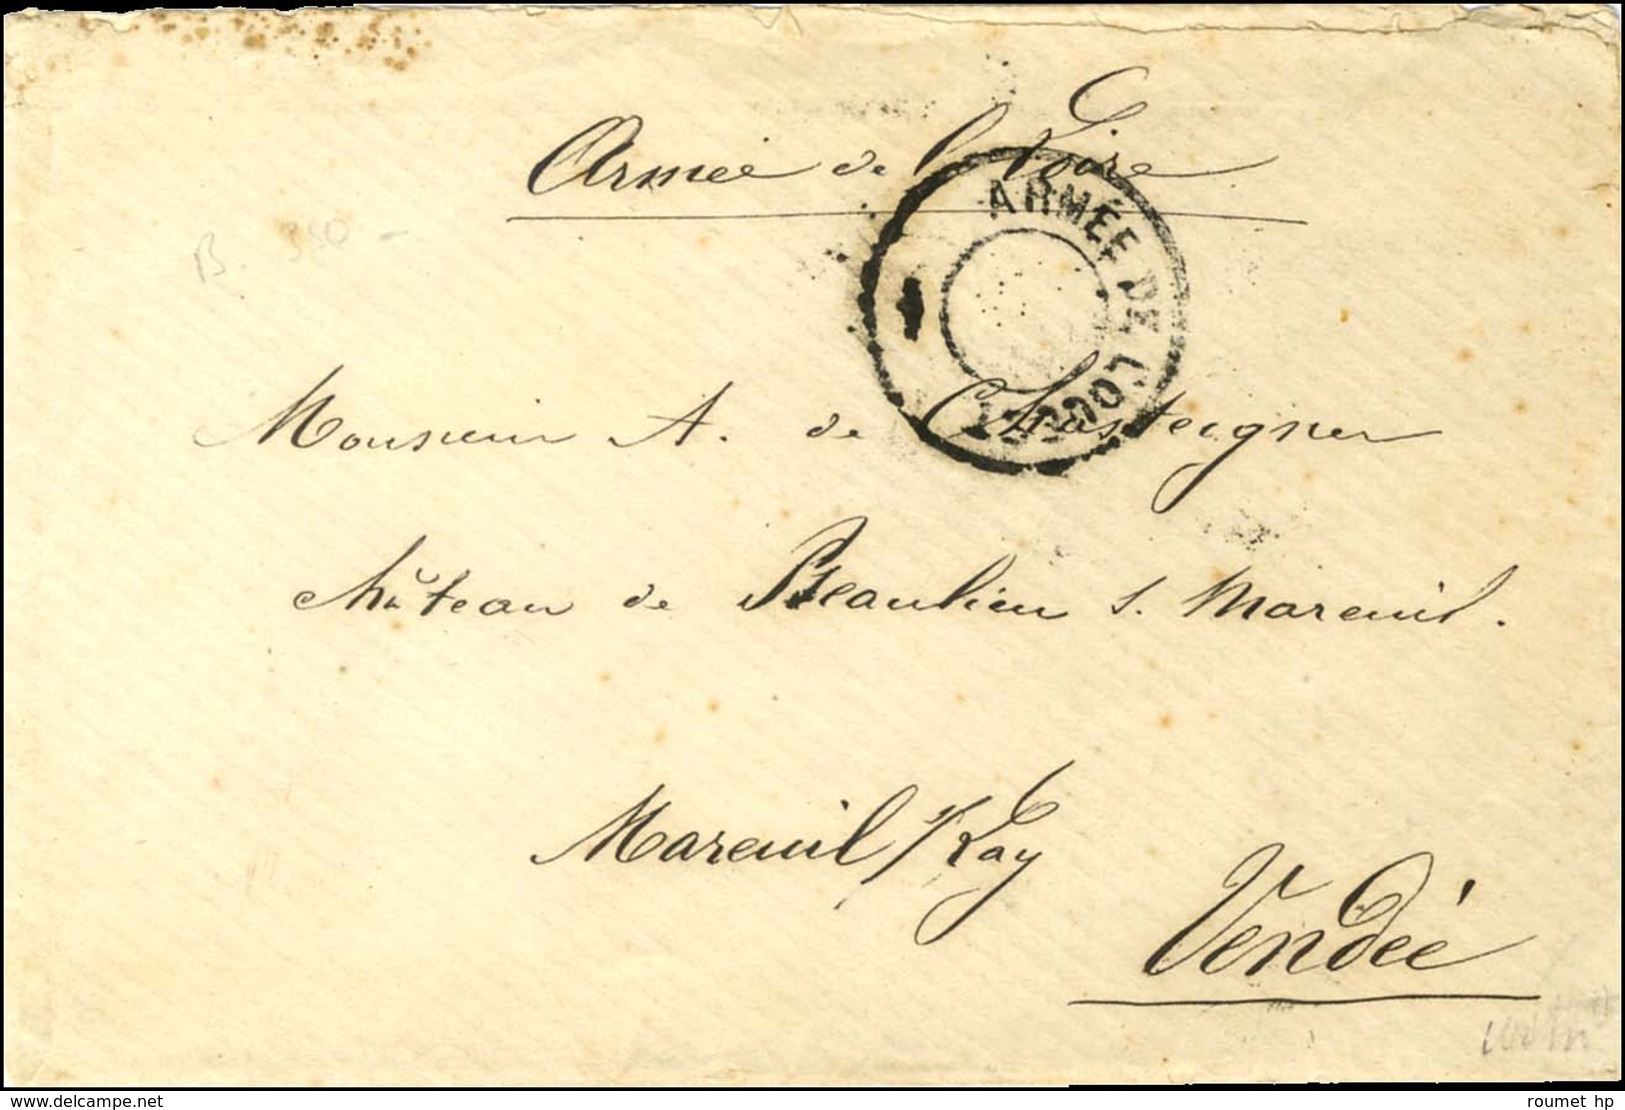 Armée de la Loire
ARMÉE DE L'OUEST
B. 350 -
Monsieur A. de Chasteigner
château de Beaulieu s. Mareuil.
Mareuil s/Lay
Vendée
delcampe.net
roumet hp